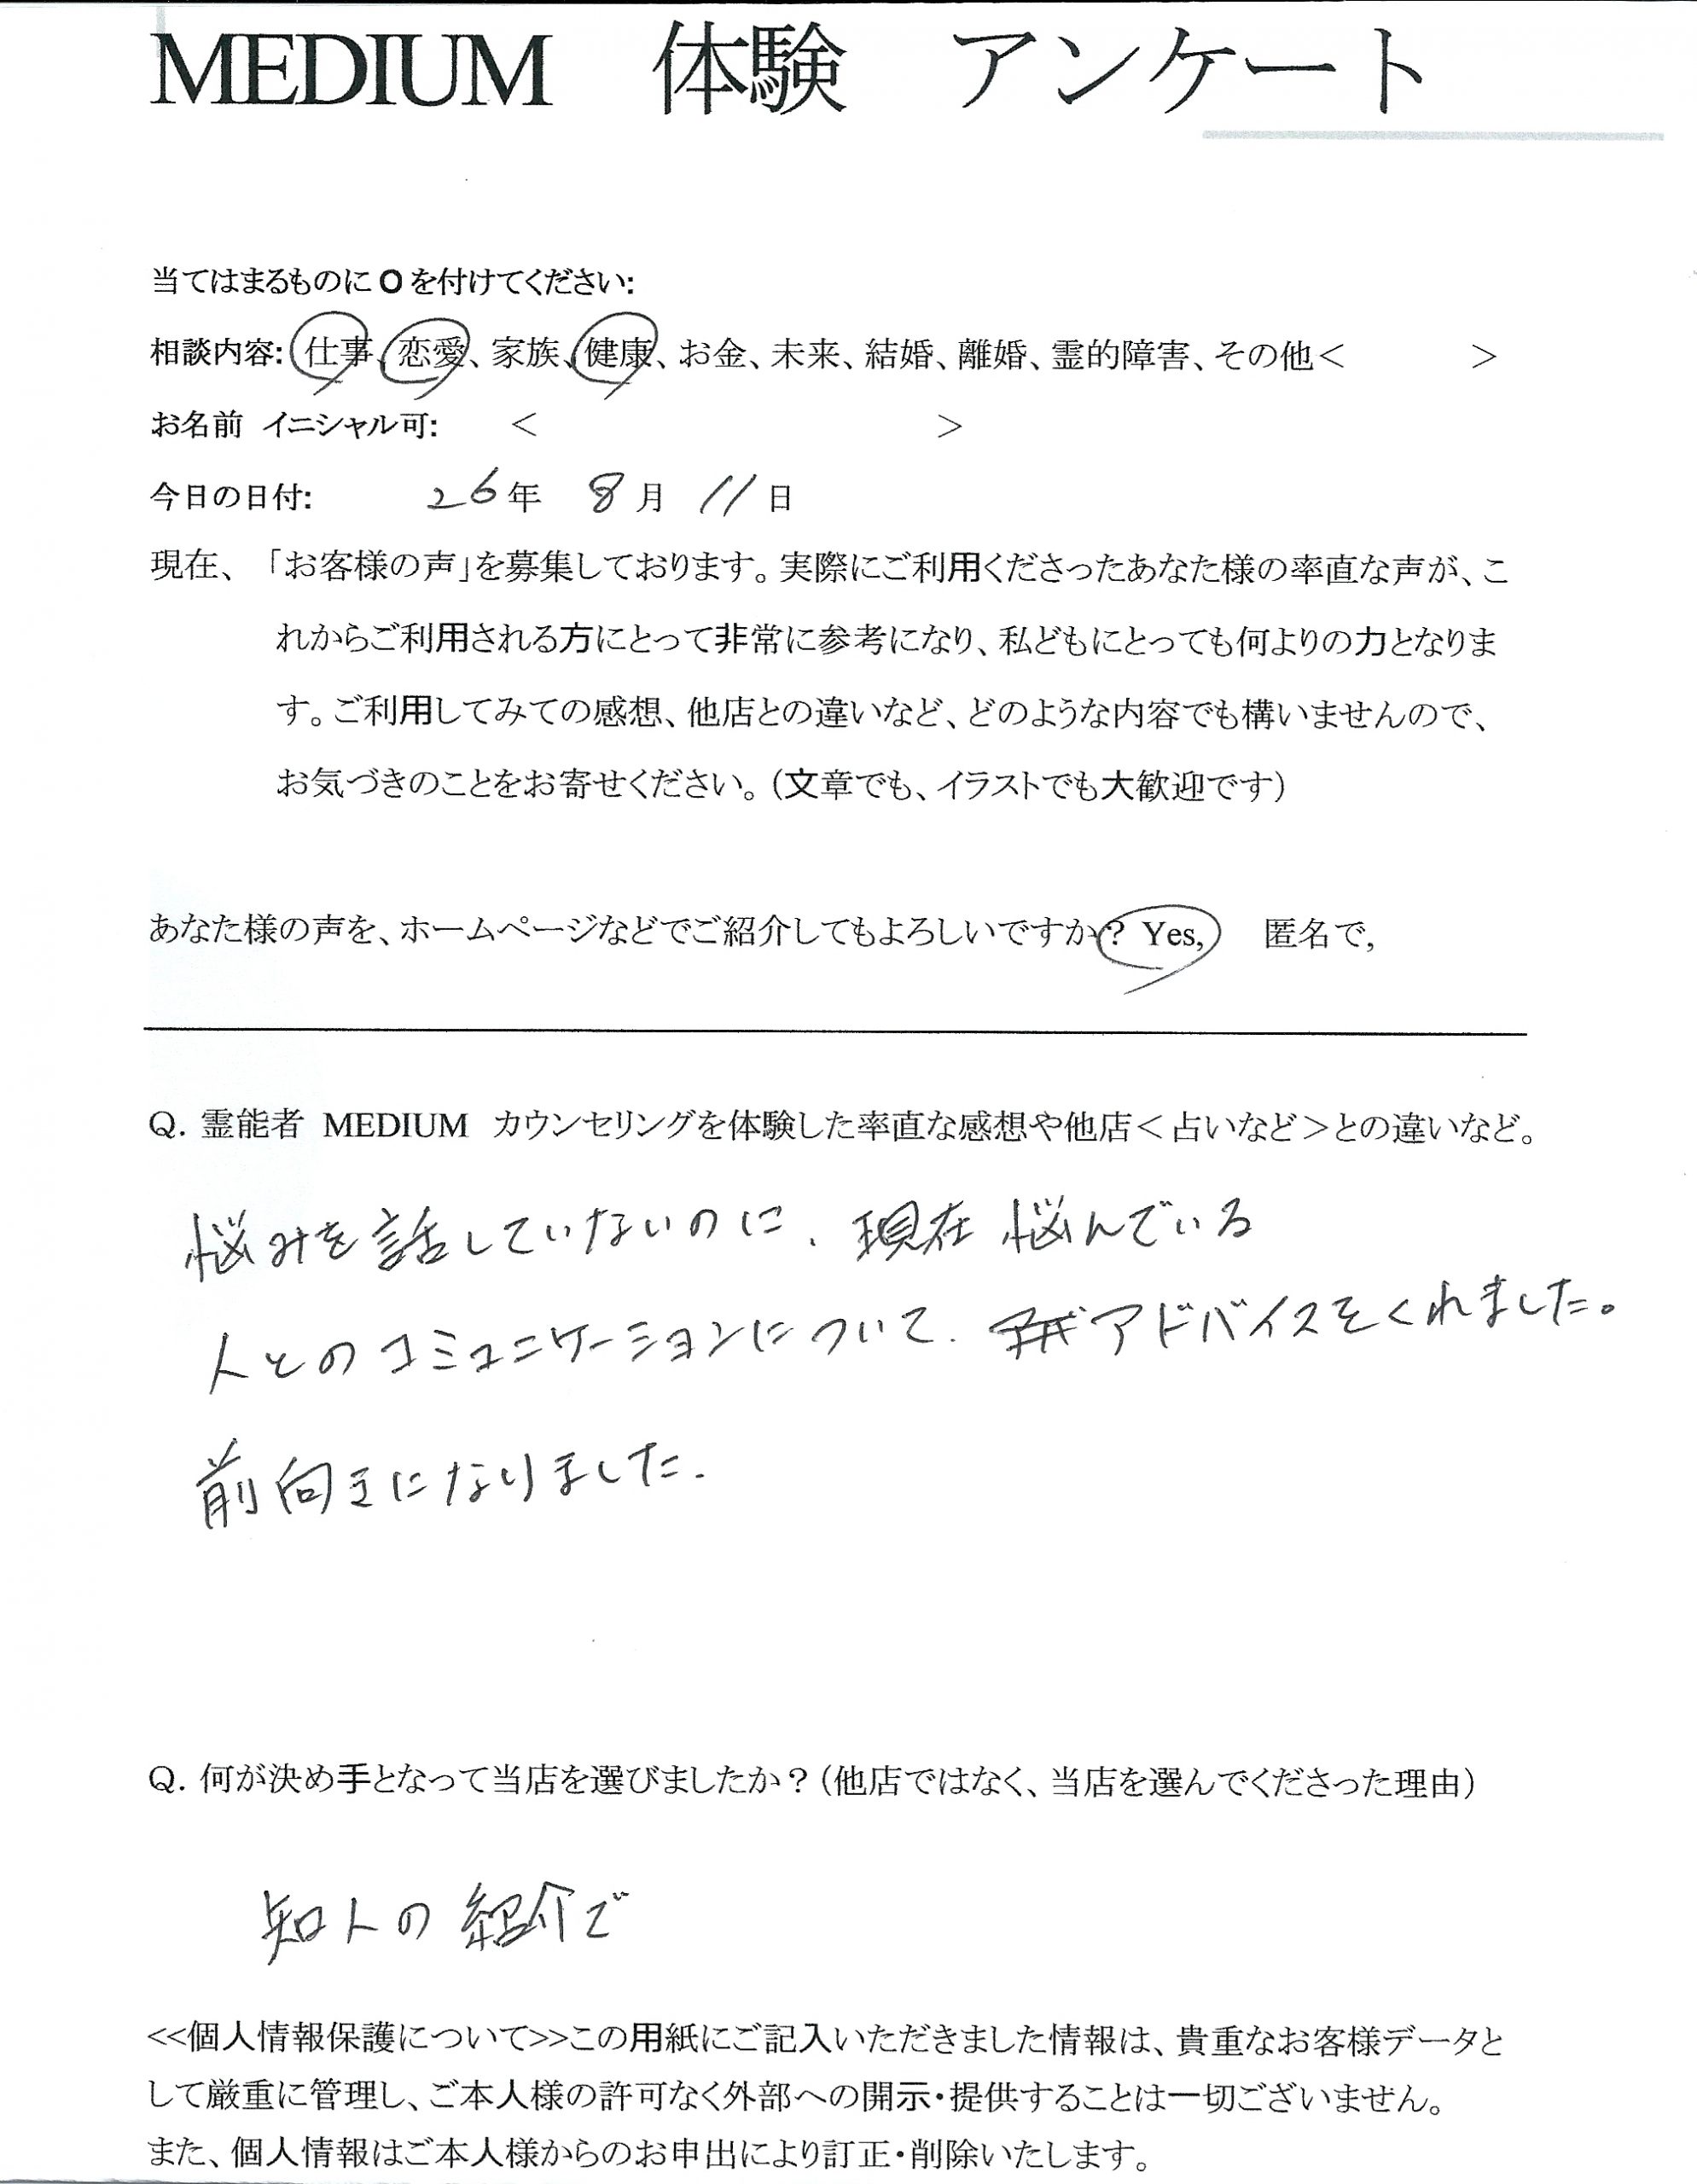 MEDIUM 体験 アンケート
当てはまるものにOを付けてください:
相談内容: 仕事、恋愛、家族、健康、お金、未来、結婚、離婚、霊的障害、その他< >
お名前 イニシャル可: < >
今日の日付: 26年 8月 11日
現在、「お客様の声」を募集しております。実際にご利用くださったあなた様の率直な声が、こ
れからご利用される方にとって非常に参考になり、私どもにとっても何よりの力となりま
す。ご利用してみての感想、他店との違いなど、どのような内容でも構いませんので、
お気づきのことをお寄せください。(文章でも、イラストでも大歓迎です)
あなた様の声を、ホームページなどでご紹介してもよろしいですか? Yes, 匿名で,
Q. 霊能者 MEDIUM カウンセリングを体験した率直な感想や他店<占いなど>との違いなど。
悩みを話していないのに、現在 悩んでいる
人とのコミュニケーションについて、アドバイスをくれました。
前向きになりました。
Q. 何が決め手となって当店を選びましたか?(他店ではなく、当店を選んでくださった理由)
知人の紹介で
<<個人情報保護について>>この用紙にご記入いただきました情報は、貴重なお客様データと
して厳重に管理し、ご本人様の許可なく外部への開示・提供することは一切ございません。
また、個人情報はご本人様からのお申出により訂正・削除いたします。